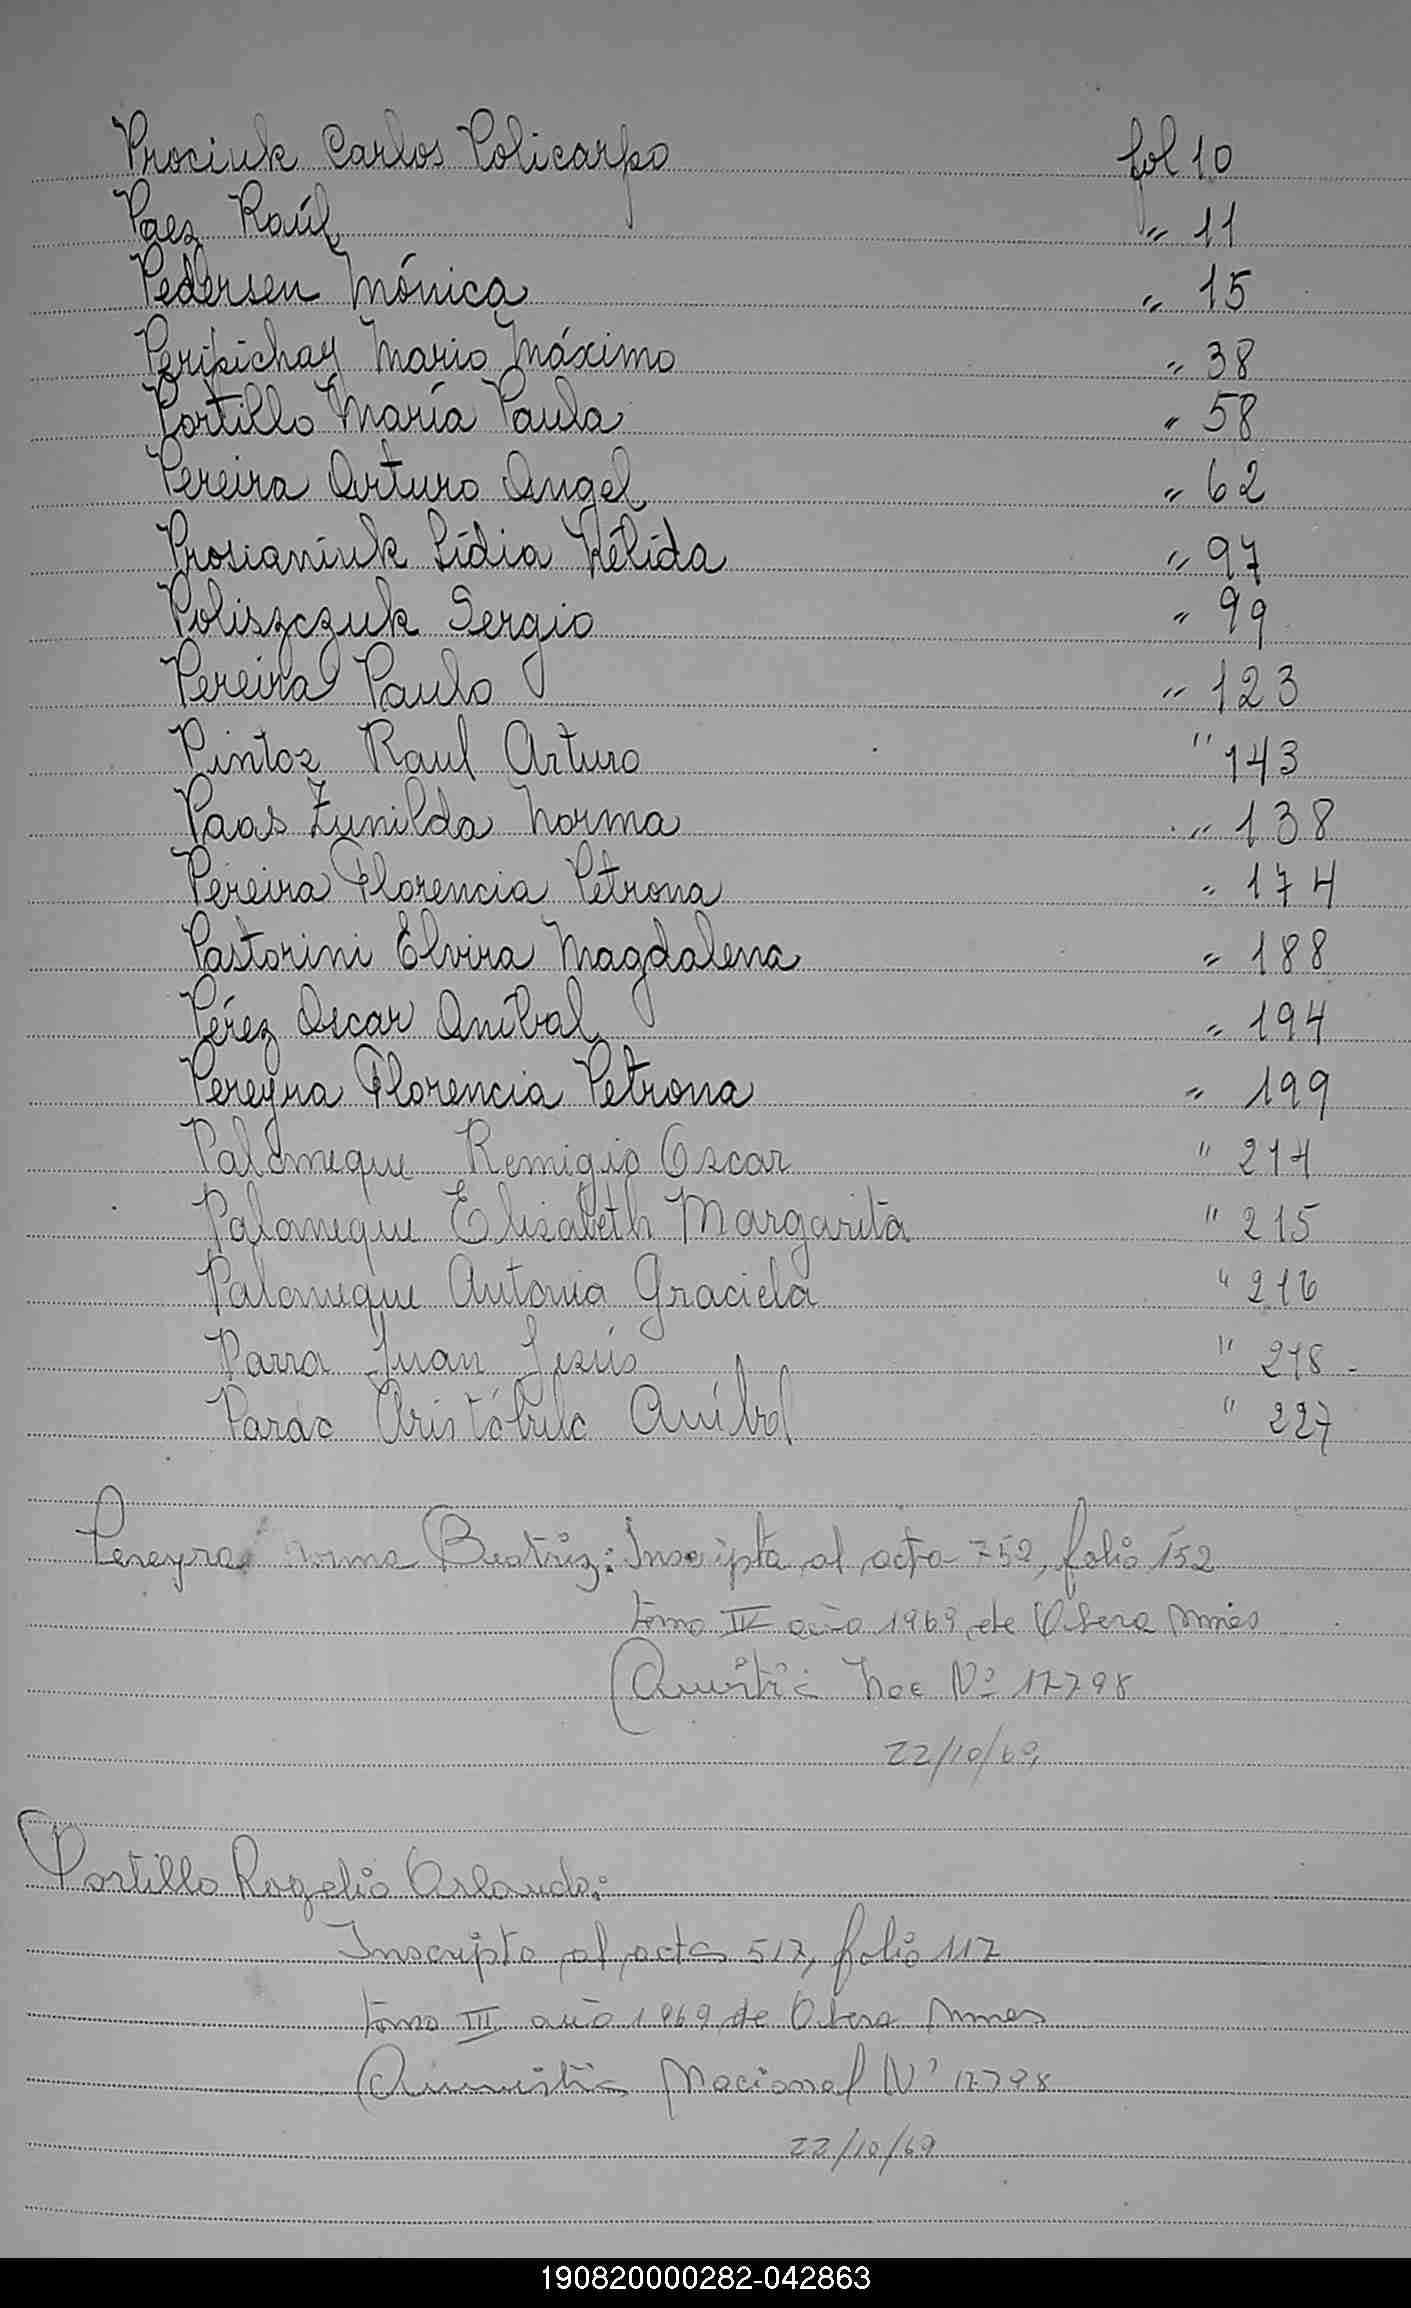 Prociuk Carlos Policarpo fol 10
Paez Raúl " 11
Pedersen Mónica " 15
Peripichay Mario Máximo " 38
Portillo María Paula " 58
Pereira Arturo Angel " 62
Prosianiuk Lidia Nélida " 97
Poliszczuk Sergio " 99
Pereira Paulo " 123
Pintos Raul Arturo " 143
Paas Zunilda Norma " 138
Pereira Florencia Petrona " 174
Pastorini Elvira Magdalena " 188
Pérez Oscar Aníbal " 194
Pereyra Florencia Petrona " 199
Palomeque Remigio Oscar " 214
Palomeque Elisabeth Margarita " 215
Palomeque Antonia Graciela " 216
Parra Juan Jesús " 218 -
Parao Aristóbulo Aníbal " 227
Pereyra Norma Beatriz: Inscripta al acta 752, folio 152
tomo IV año 1969, de Obera Mnes
Amnistia Nac Nº 17798
22/10/69
Portillo Rogelio Orlando:
Inscripto al acta 517, folio 117
tomo III año 1969 de Obera Mnes
Amnistia Nacional Nº 17798
22/10/69
190820000282-042863